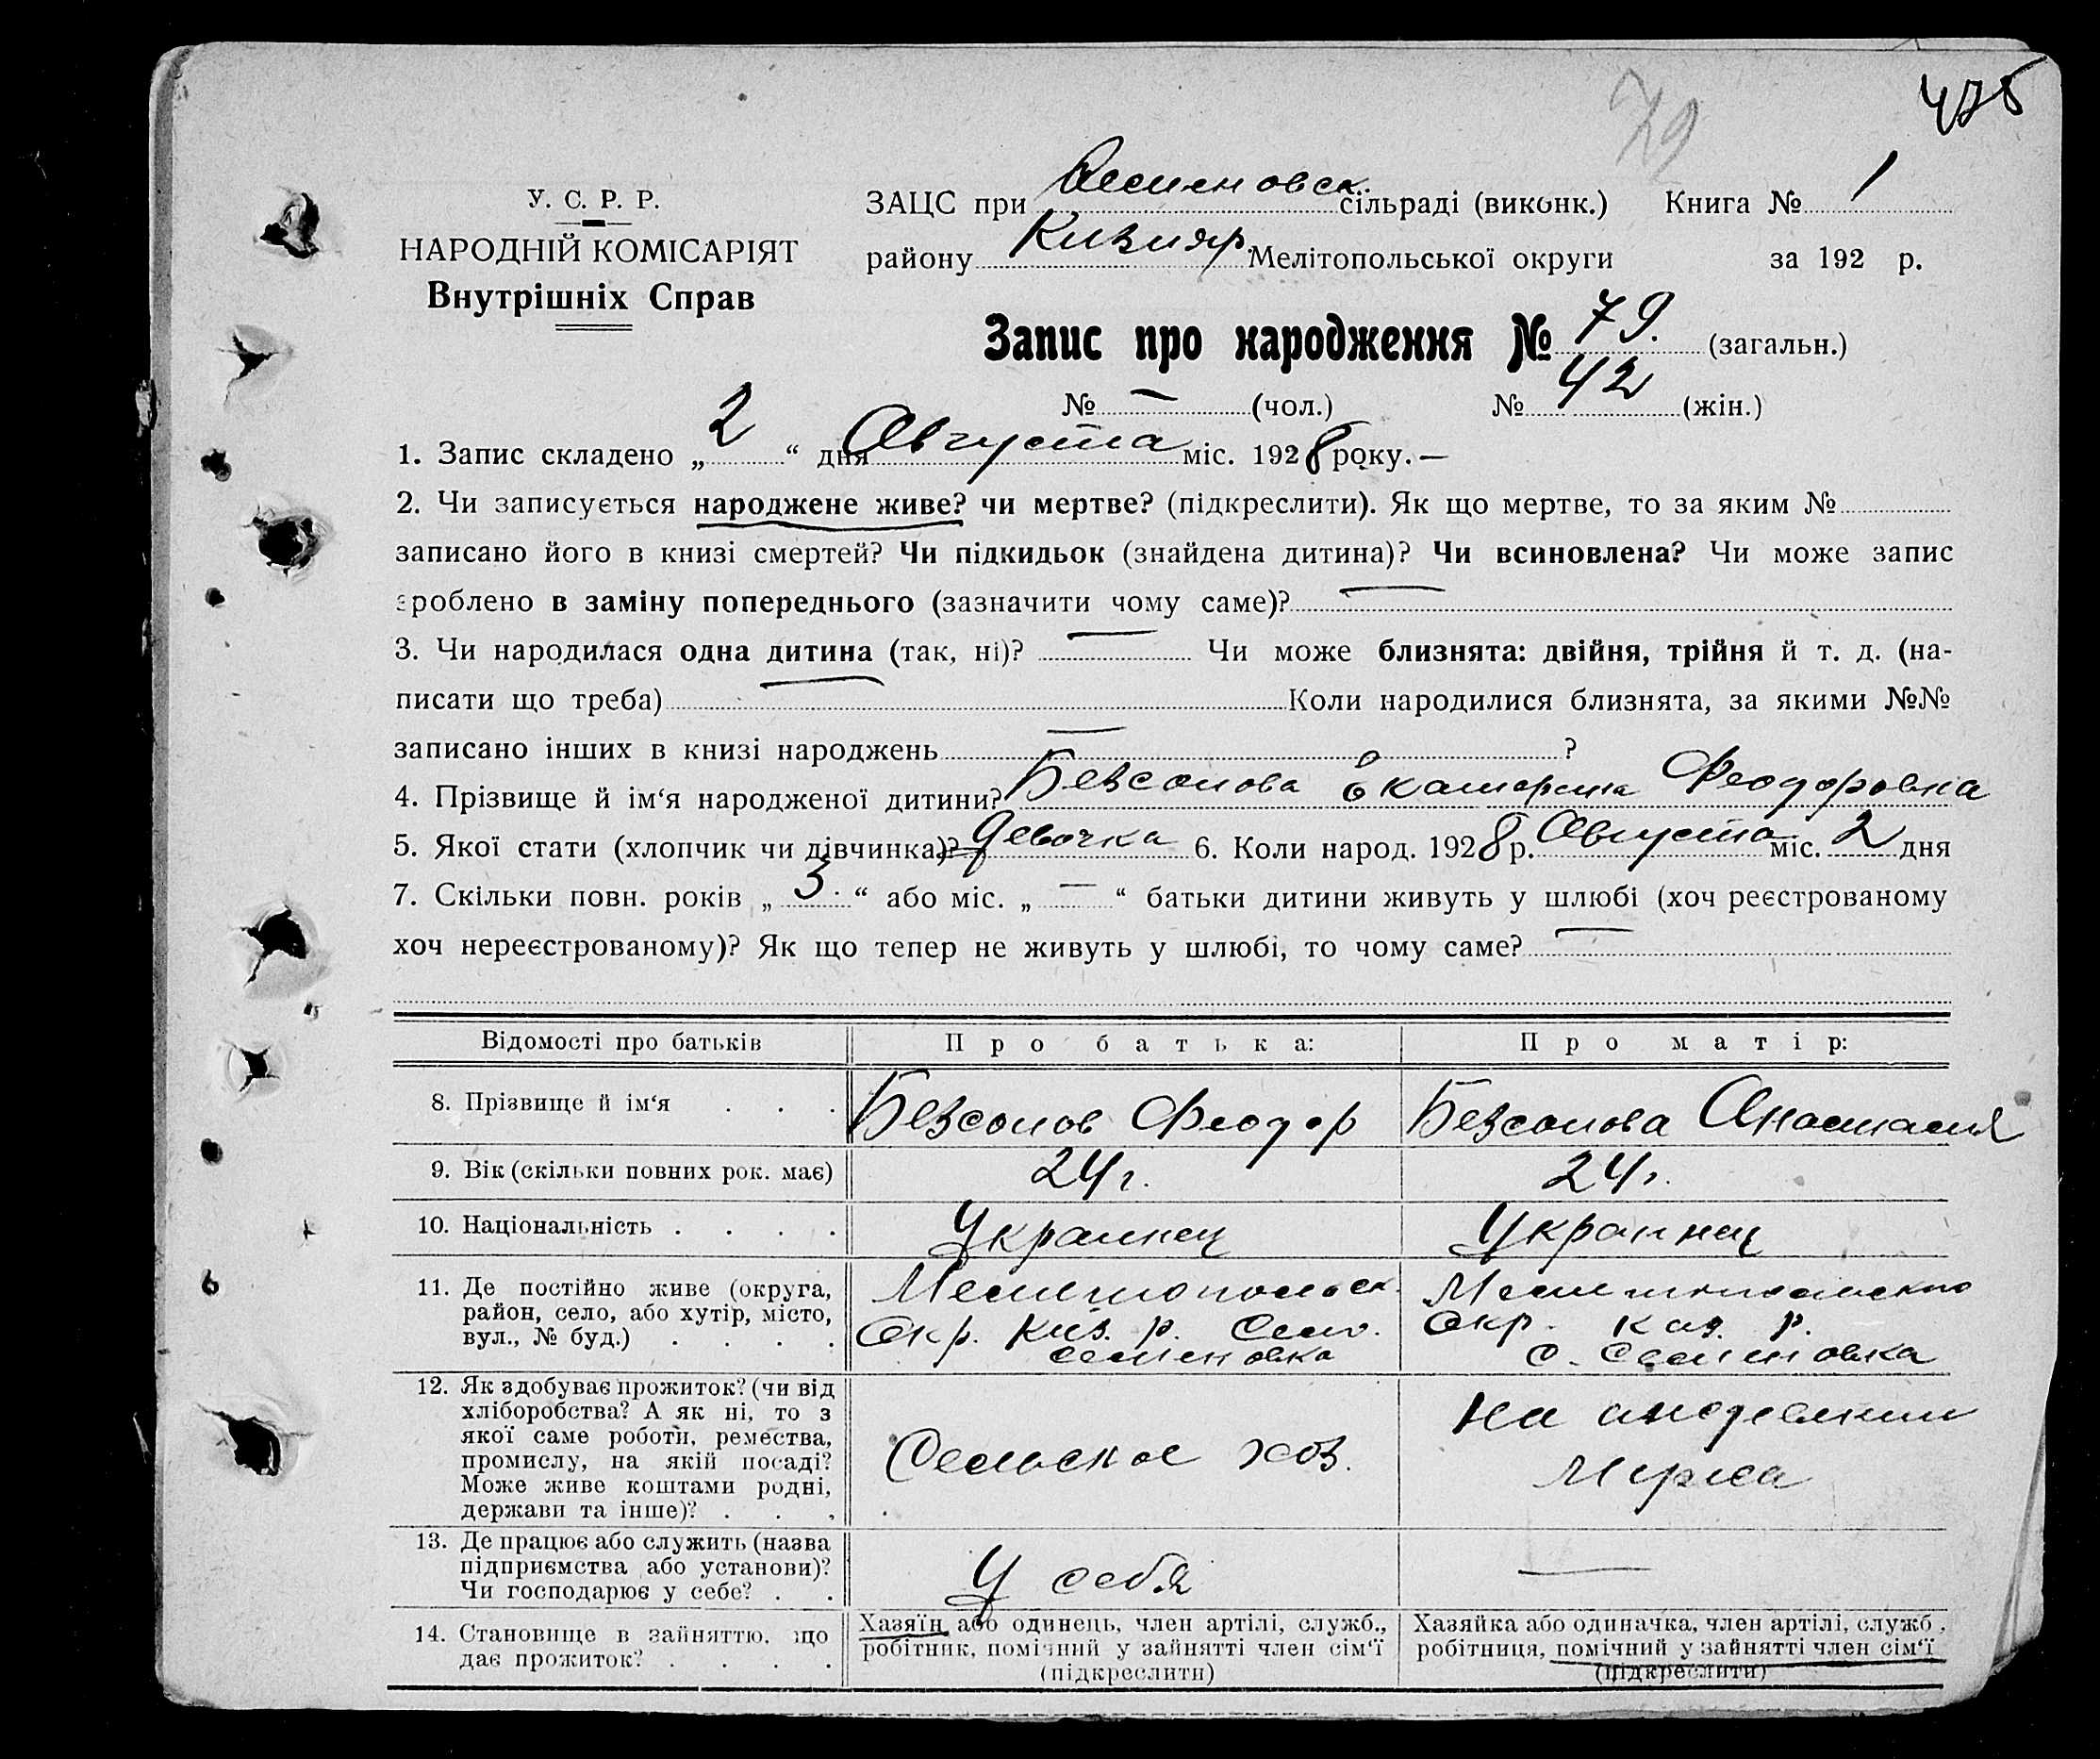 475
79
У. С. Р. Р.
НАРОДНІЙ КОМІСАРІЯТ
Внутрішніх Справ
ЗАЦС при Семеновск. сільраді (виконк.) Книга № 1
району Кизияр. Мелітопольської округи за 192 р.
Запис про народження № 79. (загальн.)
№ — (чол.) № 42 (жін.)
1. Запис складено „ 2 “ дня Августа міс. 1928 року. —
2. Чи записується народжене живе? чи мертве? (підкреслити). Як що мертве, то за яким №
записано його в книзі смертей? Чи підкидьок (знайдена дитина)? Чи всиновлена? Чи може запис
зроблено в заміну попереднього (зазначити чому саме)? —
3. Чи народилася одна дитина (так, ні)? — Чи може близнята: двійня, трійня й т. д. (на-
писати що треба) — Коли народилися близнята, за якими №№
записано інших в книзі народжень — ?
4. Прізвище й ім‘я народженої дитини? Безсонова Екатерина Феодоровна
5. Якої стати (хлопчик чи дівчинка)? девочка 6. Коли народ. 1928 р. Августа міс. 2 дня
7. Скільки повн. років „ 3. “ або міс. „ — “ батьки дитини живуть у шлюбі (хоч реєстрованому
хоч нереєстрованому)? Як що тепер не живуть у шлюбі, то чому саме? —
Відомості про батьків Про батька: Про матір:
8. Прізвище й ім‘я . . . Безсонов Феодор Безсонова Анастасия
9. Вік (скільки повних рок. має) 24 г. 24 г.
10. Національність . . . . Украинец Украинец
11. Де постійно живе (округа, Мелитопольск. Мелитопольского
район, село, або хутір, місто, Окр. Киз. р. Село. Окр. Киз. р.
вул., № буд.) . . . . Семеновка с. Семеновка
12. Як здобуває прожиток? (чи від
хліборобства? А як ні, то з
якої саме роботи, ремества,
промислу, на якій посаді?
Може живе коштами родні,
держави та інше)? . . .
Сельское хоз.
На иждевении
Мужа
13. Де працює або служить (назва
підприємства або установи)?
Чи господарює у себе? . .
У себя
—
14. Становище в зайняттю, що
дає прожиток? . . . .
Хазяїн або одинець, член артілі, служб.,
робітник, помічний у зайнятті член сім‘ї
(підкреслити)
Хазяйка або одиначка, член артілі, служб.,
робітниця, помічний у зайнятті член сім‘ї
(підкреслити)